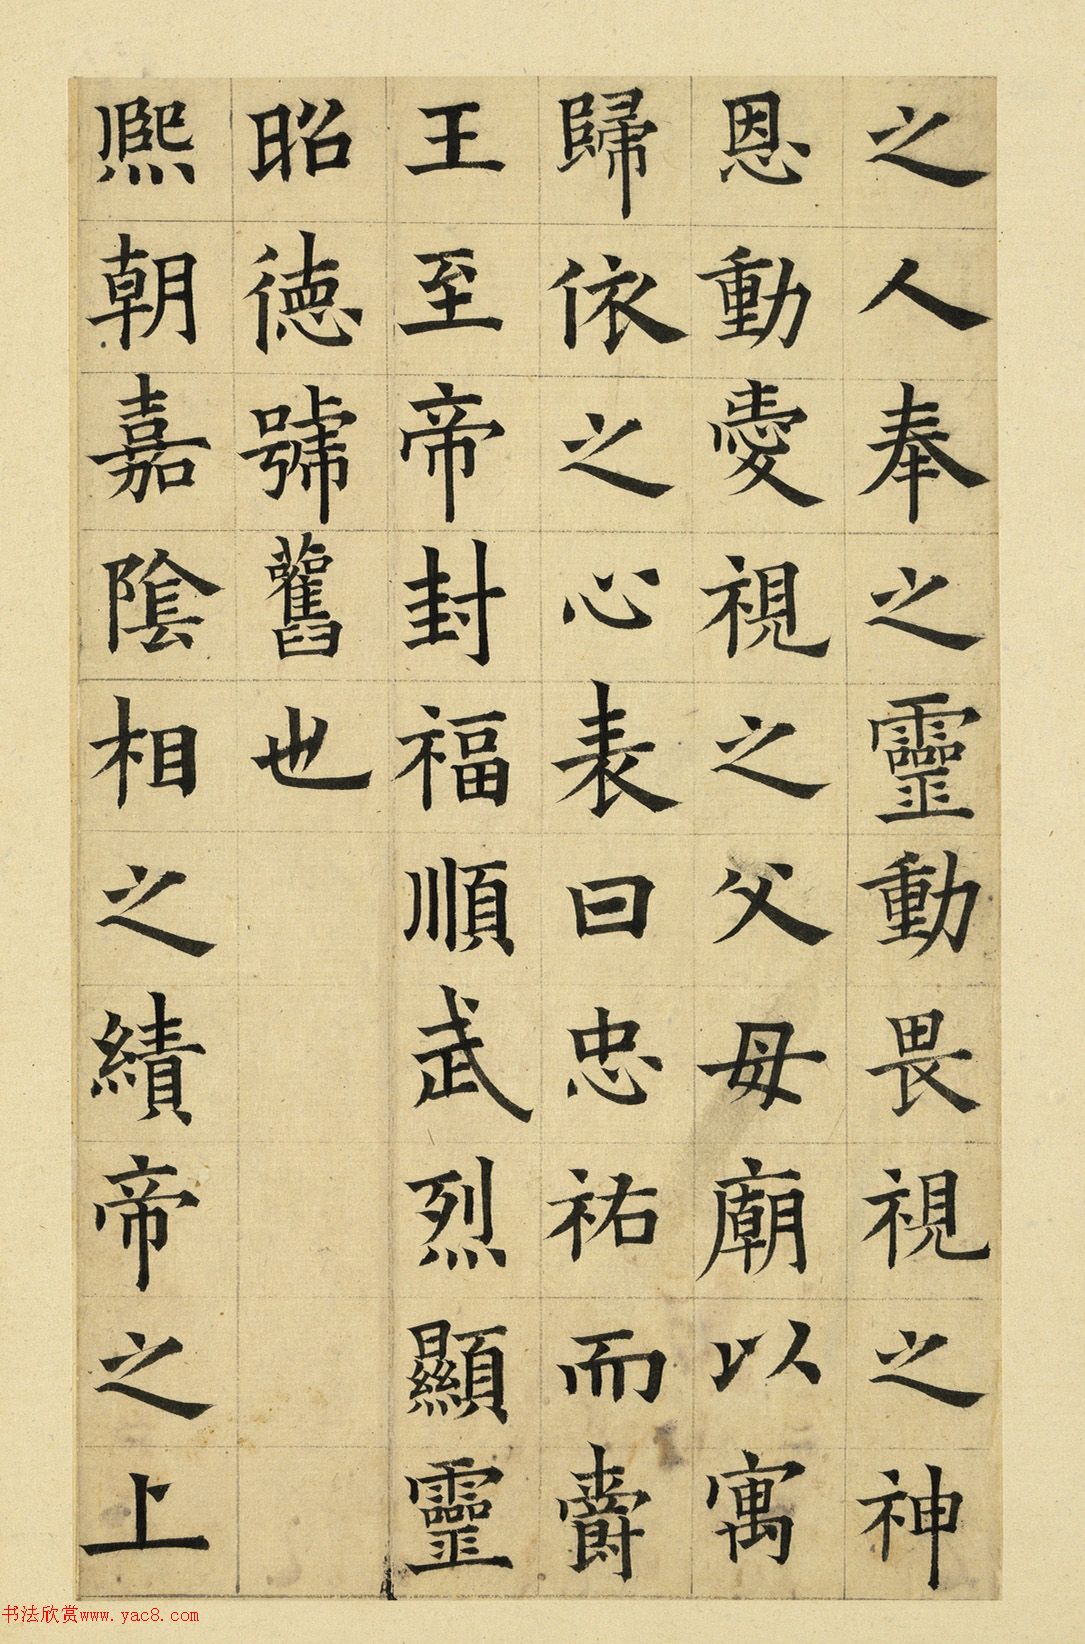 之人奉之靈動畏視之神
恩動愛視之父母廟以寓
歸依之心表曰忠祐而爵
王至帝封福順武烈顯靈
昭德號舊也
熙朝嘉隂相之績帝之上
书法欣赏www.yac8.com